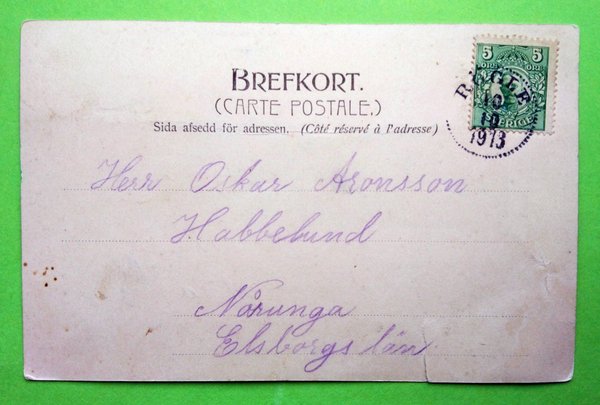 5 5
ÖRE ÖRE
SVERIGE
BREFKORT.
(CARTE POSTALE.)
Sida afsedd för adressen. (Côté réservé à l'adresse)
10
10
1913
Herr Oskar Aronsson
Habbelund
Nårunga
Elsborgs län